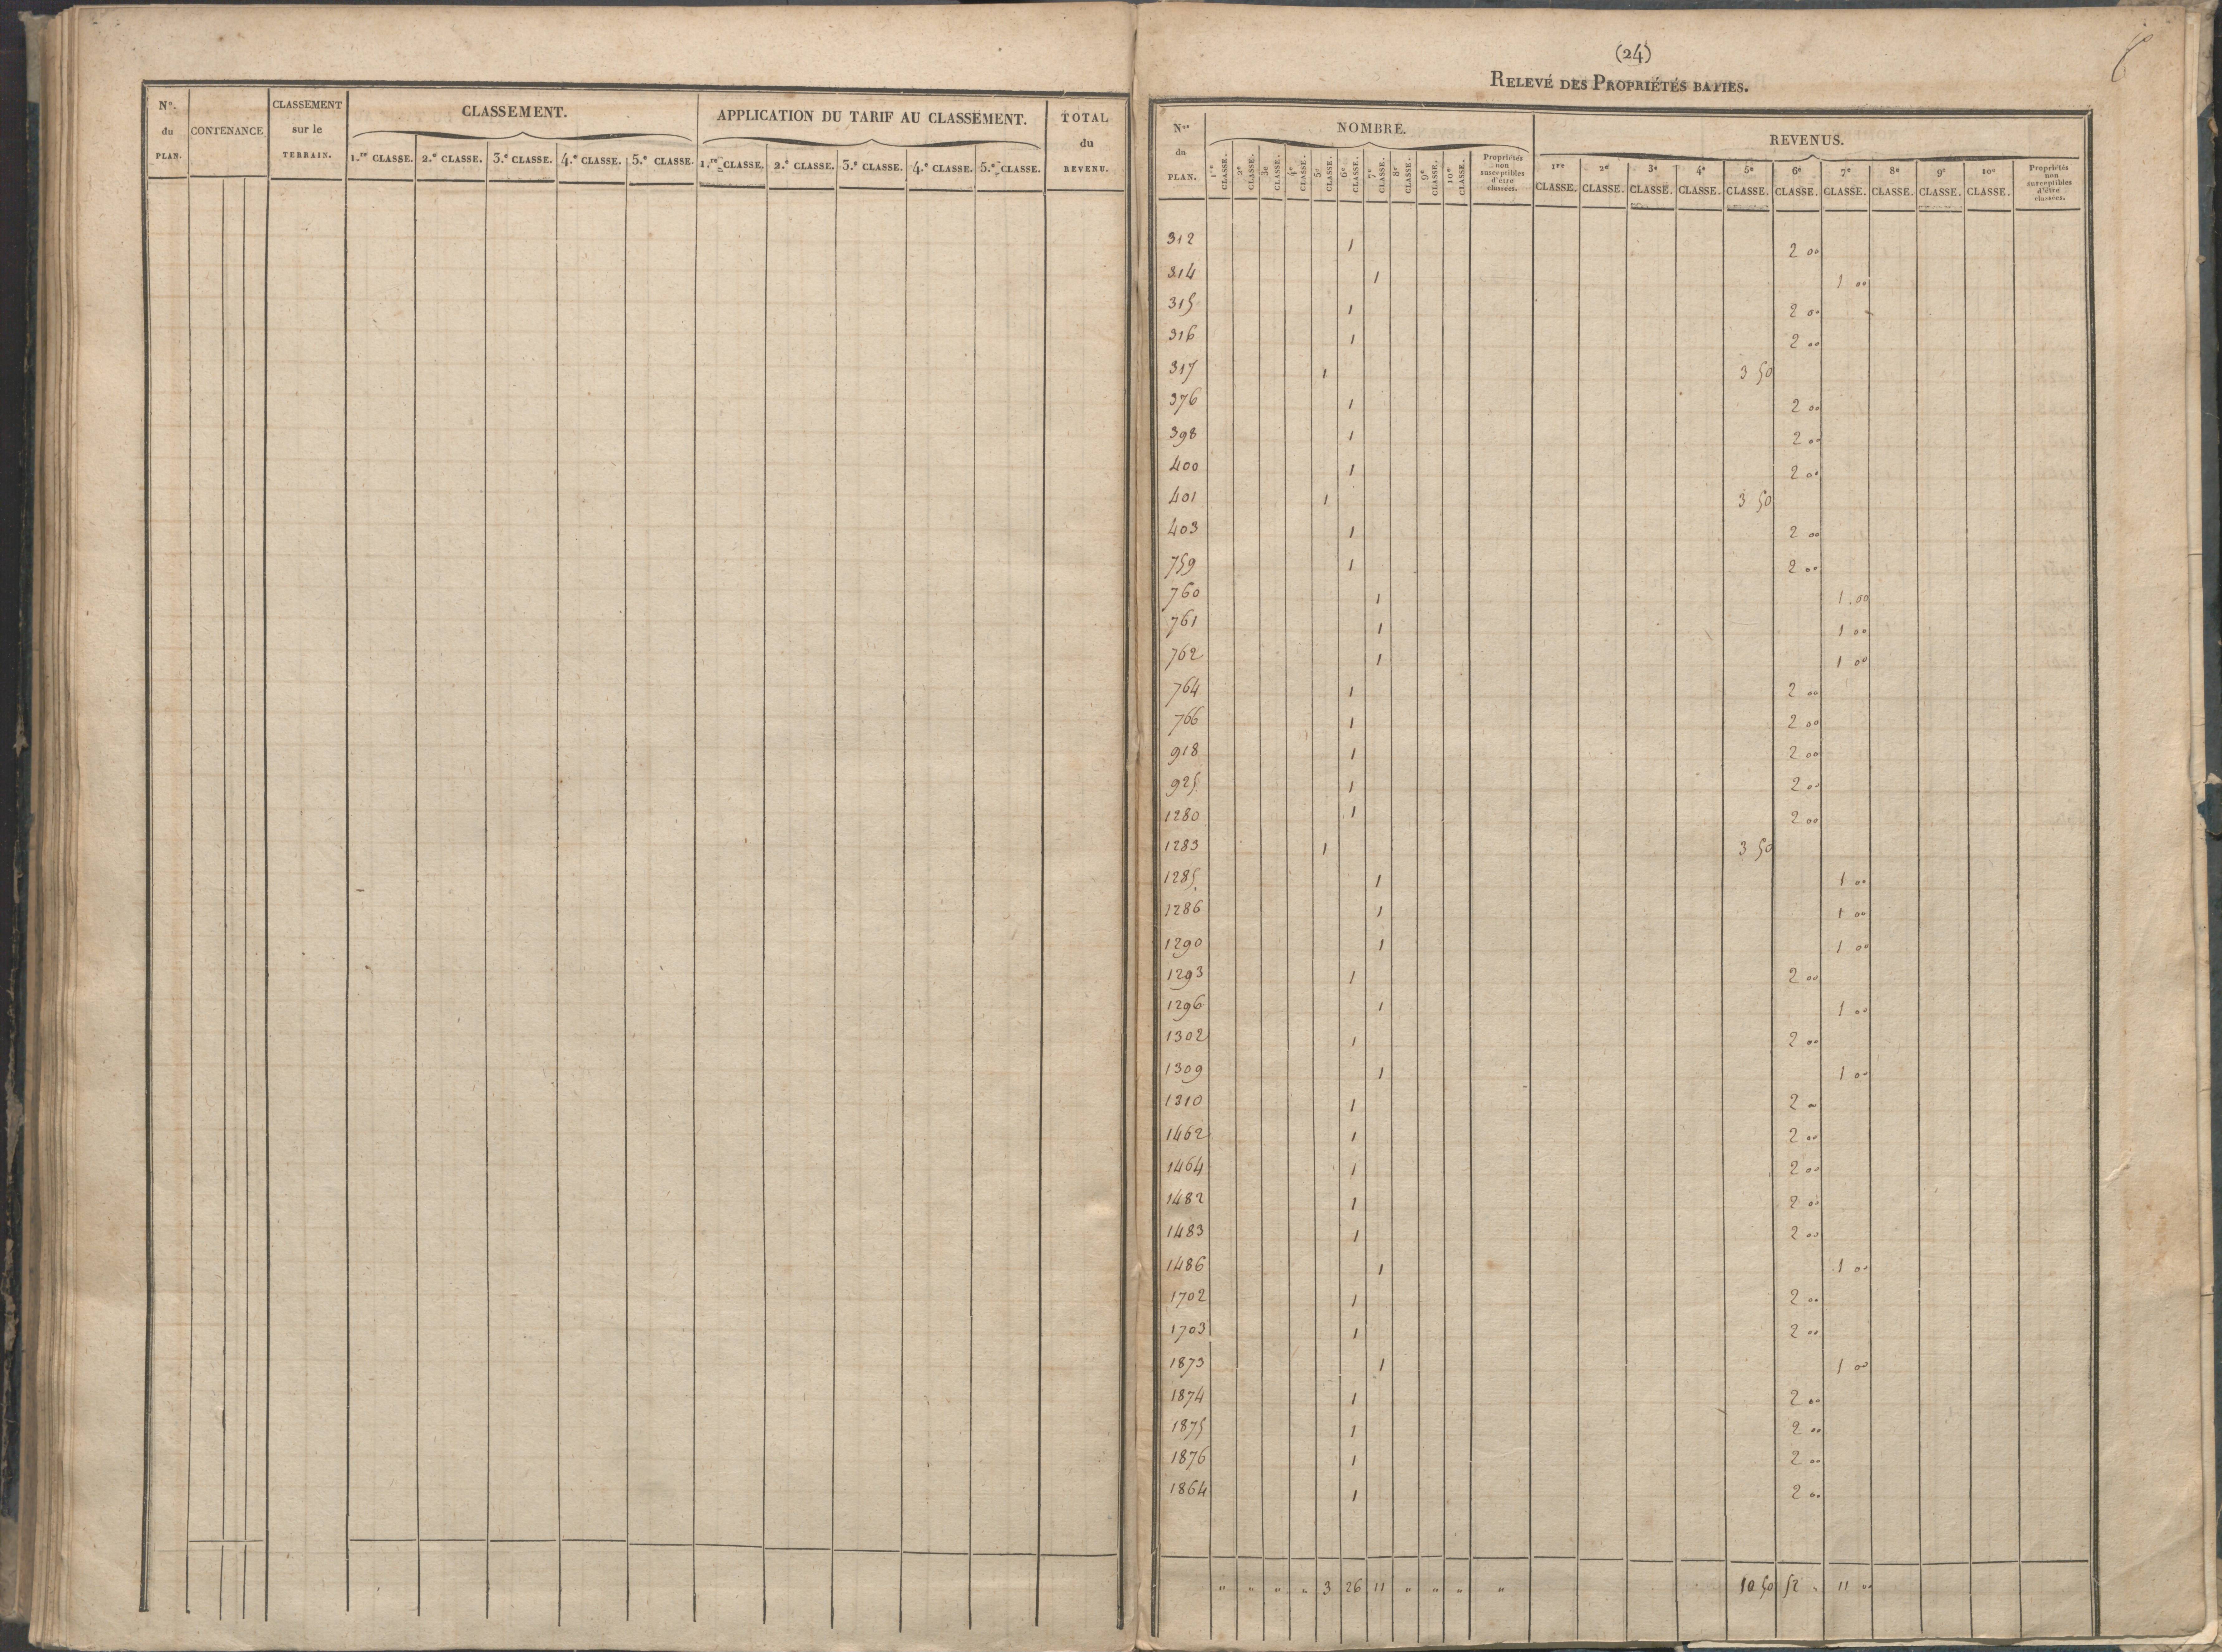 N°. du PLAN. CONTENANCE CLASSEMENT sur le TERRAIN. CLASSEMENT. APPLICATION DU TARIF AU CLASSEMENT. TOTAL du REVENU.
1.re CLASSE. 2.e CLASSE. 3.e CLASSE. 4.e CLASSE. 5.e CLASSE. 1.re CLASSE. 2.e CLASSE. 3.e CLASSE. 4.e CLASSE. 5.e CLASSE.
(24)
RELEVÉ DES PROPRIÉTÉS BATIES.
Nos du PLAN. NOMBRE. REVENUS.
1re CLASSE. 2e CLASSE. 3e CLASSE. 4e CLASSE. 5e CLASSE. 6e CLASSE. 7e CLASSE. 8e CLASSE. 9e CLASSE. 10e CLASSE. Propriétés non susceptibles d'être classées. 1re CLASSE. 2e CLASSE. 3e CLASSE. 4e CLASSE. 5e CLASSE. 6e CLASSE. 7e CLASSE. 8e CLASSE. 9e CLASSE. 10e CLASSE. Propriétés non susceptibles d'être classées.
312 1 2 00
314 1 1 00
315 1 2 00
316 1 2 00
317 1 3 50
376 1 2 00
398 1 2 00
400 1 2 00
401 1 3 50
403 1 2 00
759 1 2 00
760 1 1.00
761 1 1 00
762 1 1 00
764 1 2 00
766 1 2 00
918 1 2 00
925 1 2 00
1280 1 2 00
1283 1 3 50
1285 1 1 00
1286 1 1 00
1290 1 1 00
1293 1 2 00
1296 1 1 00
1302 1 2 00
1309 1 1 00
1310 1 2 00
1462 1 2 00
1464 1 2 00
1482 1 2 00
1483 1 2 00
1486 1 1 00
1702 1 2 00
1703 1 2 00
1873 1 1 00
1874 1 2 00
1875 1 2 00
1876 1 2 00
1864 1 2 00
" " " " 3 26 11 " " " " 10 50 52 " 11 00